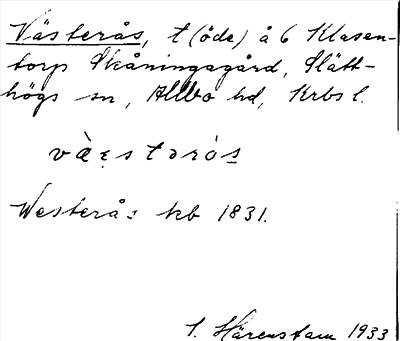 Västerås, t (öde) å 6 Klasen-
torp Skåningagård, Slätt-
högs sn, Allbo hd, Krbs l.
vàestərò̀s
Westerås kb 1831.
I. Härenstam 1933